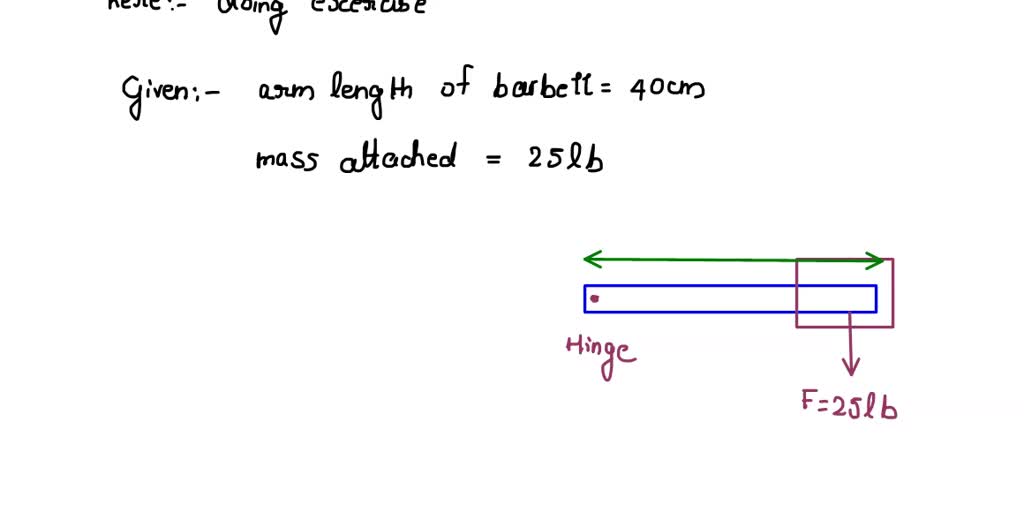 :- doing excercise
Given:- arm length of barbell = 40cm
mass attached = 25lb
Hinge
F=25lb